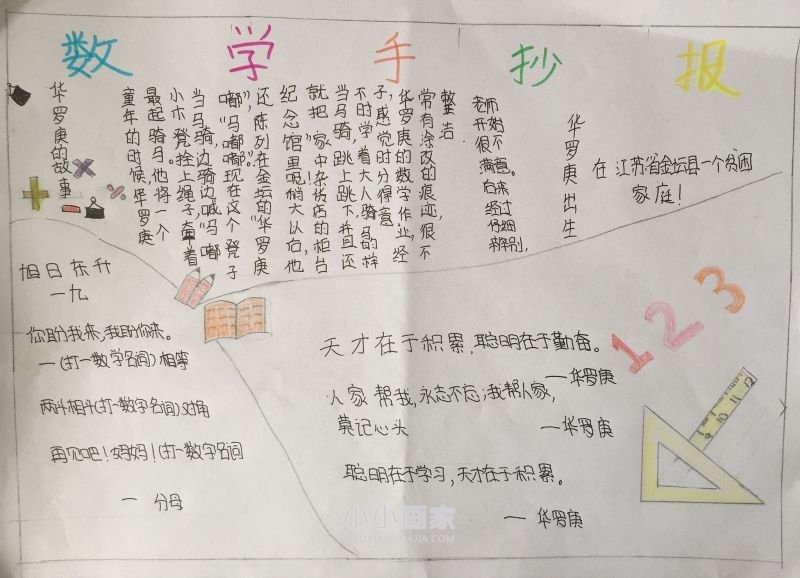 数学手抄报
华罗庚的故事
童年的时候,华罗庚
最起骑马,他将一个
小木凳拴上绳子,牵着
当马骑,边骑边喊“马嘟
嘟”,“马嘟嘟”现在这个凳子
还陈列在金坛的“华罗庚
纪念馆”里。稍大以后,他
就把家中杂货店的柜台
当马骑,跳上跳下,并且还
不时学着大人骑马的样
子,感觉时分得意
华罗庚的数学作业,经
常有涂改的痕迹,很不
整洁.
老师
开始
很不
满意。
后来
经过
仔细
辨别,
华罗庚出生
在江苏省金坛县一个贫困
家庭!
旭日东升
一九
你盼我来,我盼你来。
一(打一数学名词)相等
两牛相斗(打一数字名词)对角
再见吧!妈妈!(打一数字名词
一 分母
1 2 3
天才在于积累,聪明在于勤奋。
一华罗庚
人家帮我,永志不忘;我帮人家,
莫记心头 一华罗庚
聪明在于学习,天才在于积累。
一 华罗庚
9 10 11 12
小小画家
XIAOXIAOHUAJIA.COM